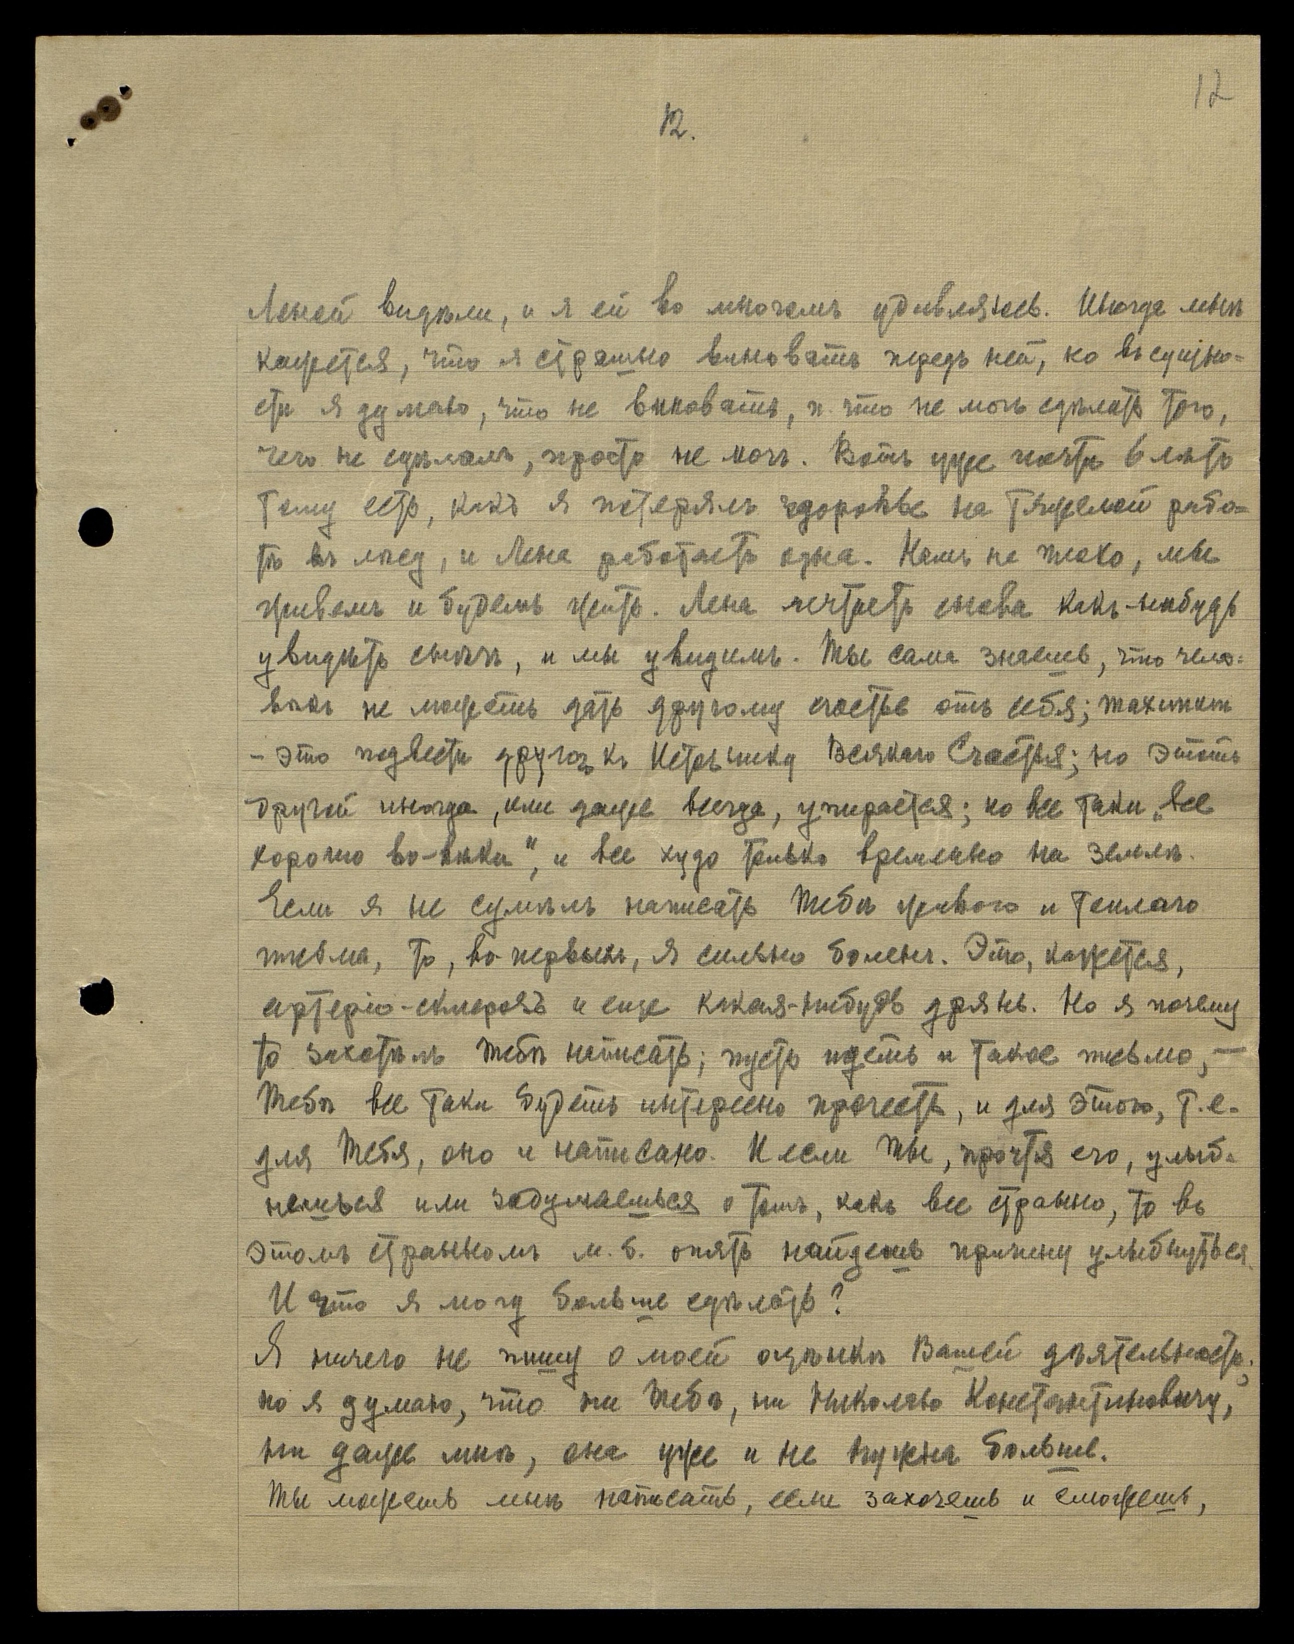 12
12.
Леной видѣли, и я ей во многомъ удивляюсь. Иногда мнѣ
кажется, что я страшно виноватъ передъ ней, но въ сущно-
сти я думаю, что не виноватъ, п. что не могъ сдѣлать того,
чего не сдѣлалъ, просто не могъ. Вотъ уже почти 6 лѣтъ
тому есть, какъ я потерялъ здоровье на тяжелой рабо-
тѣ въ лѣсу, и Лена работаетъ одна. Намъ не плохо, мы
живемъ и будемъ жить. Лена мечтаетъ снова какъ-нибудь
увидѣть сынъ, и мы увидимъ. Ты сама знаешь, что чело-
вѣкъ не можетъ дать другому счастье отъ себя; максимум
- это подвести другого къ Источнику Всякаго Счастья; но этотъ
другой иногда, или даже всегда, упирается; но все таки „все
хорошо во-вѣки", и все худо только временно на землѣ.
Если я не сумѣлъ написать Тебѣ живого и теплаго
письма, то, во-первыхъ, я сильно боленъ. Это, кажется,
артеріо-склерозъ и еще какая-нибудь дрянь. Но я почему
то захотѣлъ Тебѣ написать; пусть идетъ и такое письмо, —
Тебѣ все таки будетъ интересно прочесть, и для этого, т.е.
для Тебя, оно и написано. И если Ты, прочтя его, улыб-
нешься или задумаешься о томъ, какъ все странно, то въ
этомъ странномъ м.б. опять найдешь причину улыбнуться.
И что я могу больше сдѣлать?
Я ничего не пишу о моей оцѣнкѣ Вашей дѣятельности;
но я думаю, что ни Тебѣ, ни Николаю Константиновичу,
ни даже мнѣ, она уже и не нужна больше.
Ты можешь мнѣ написать, если захочешь и сможешь,